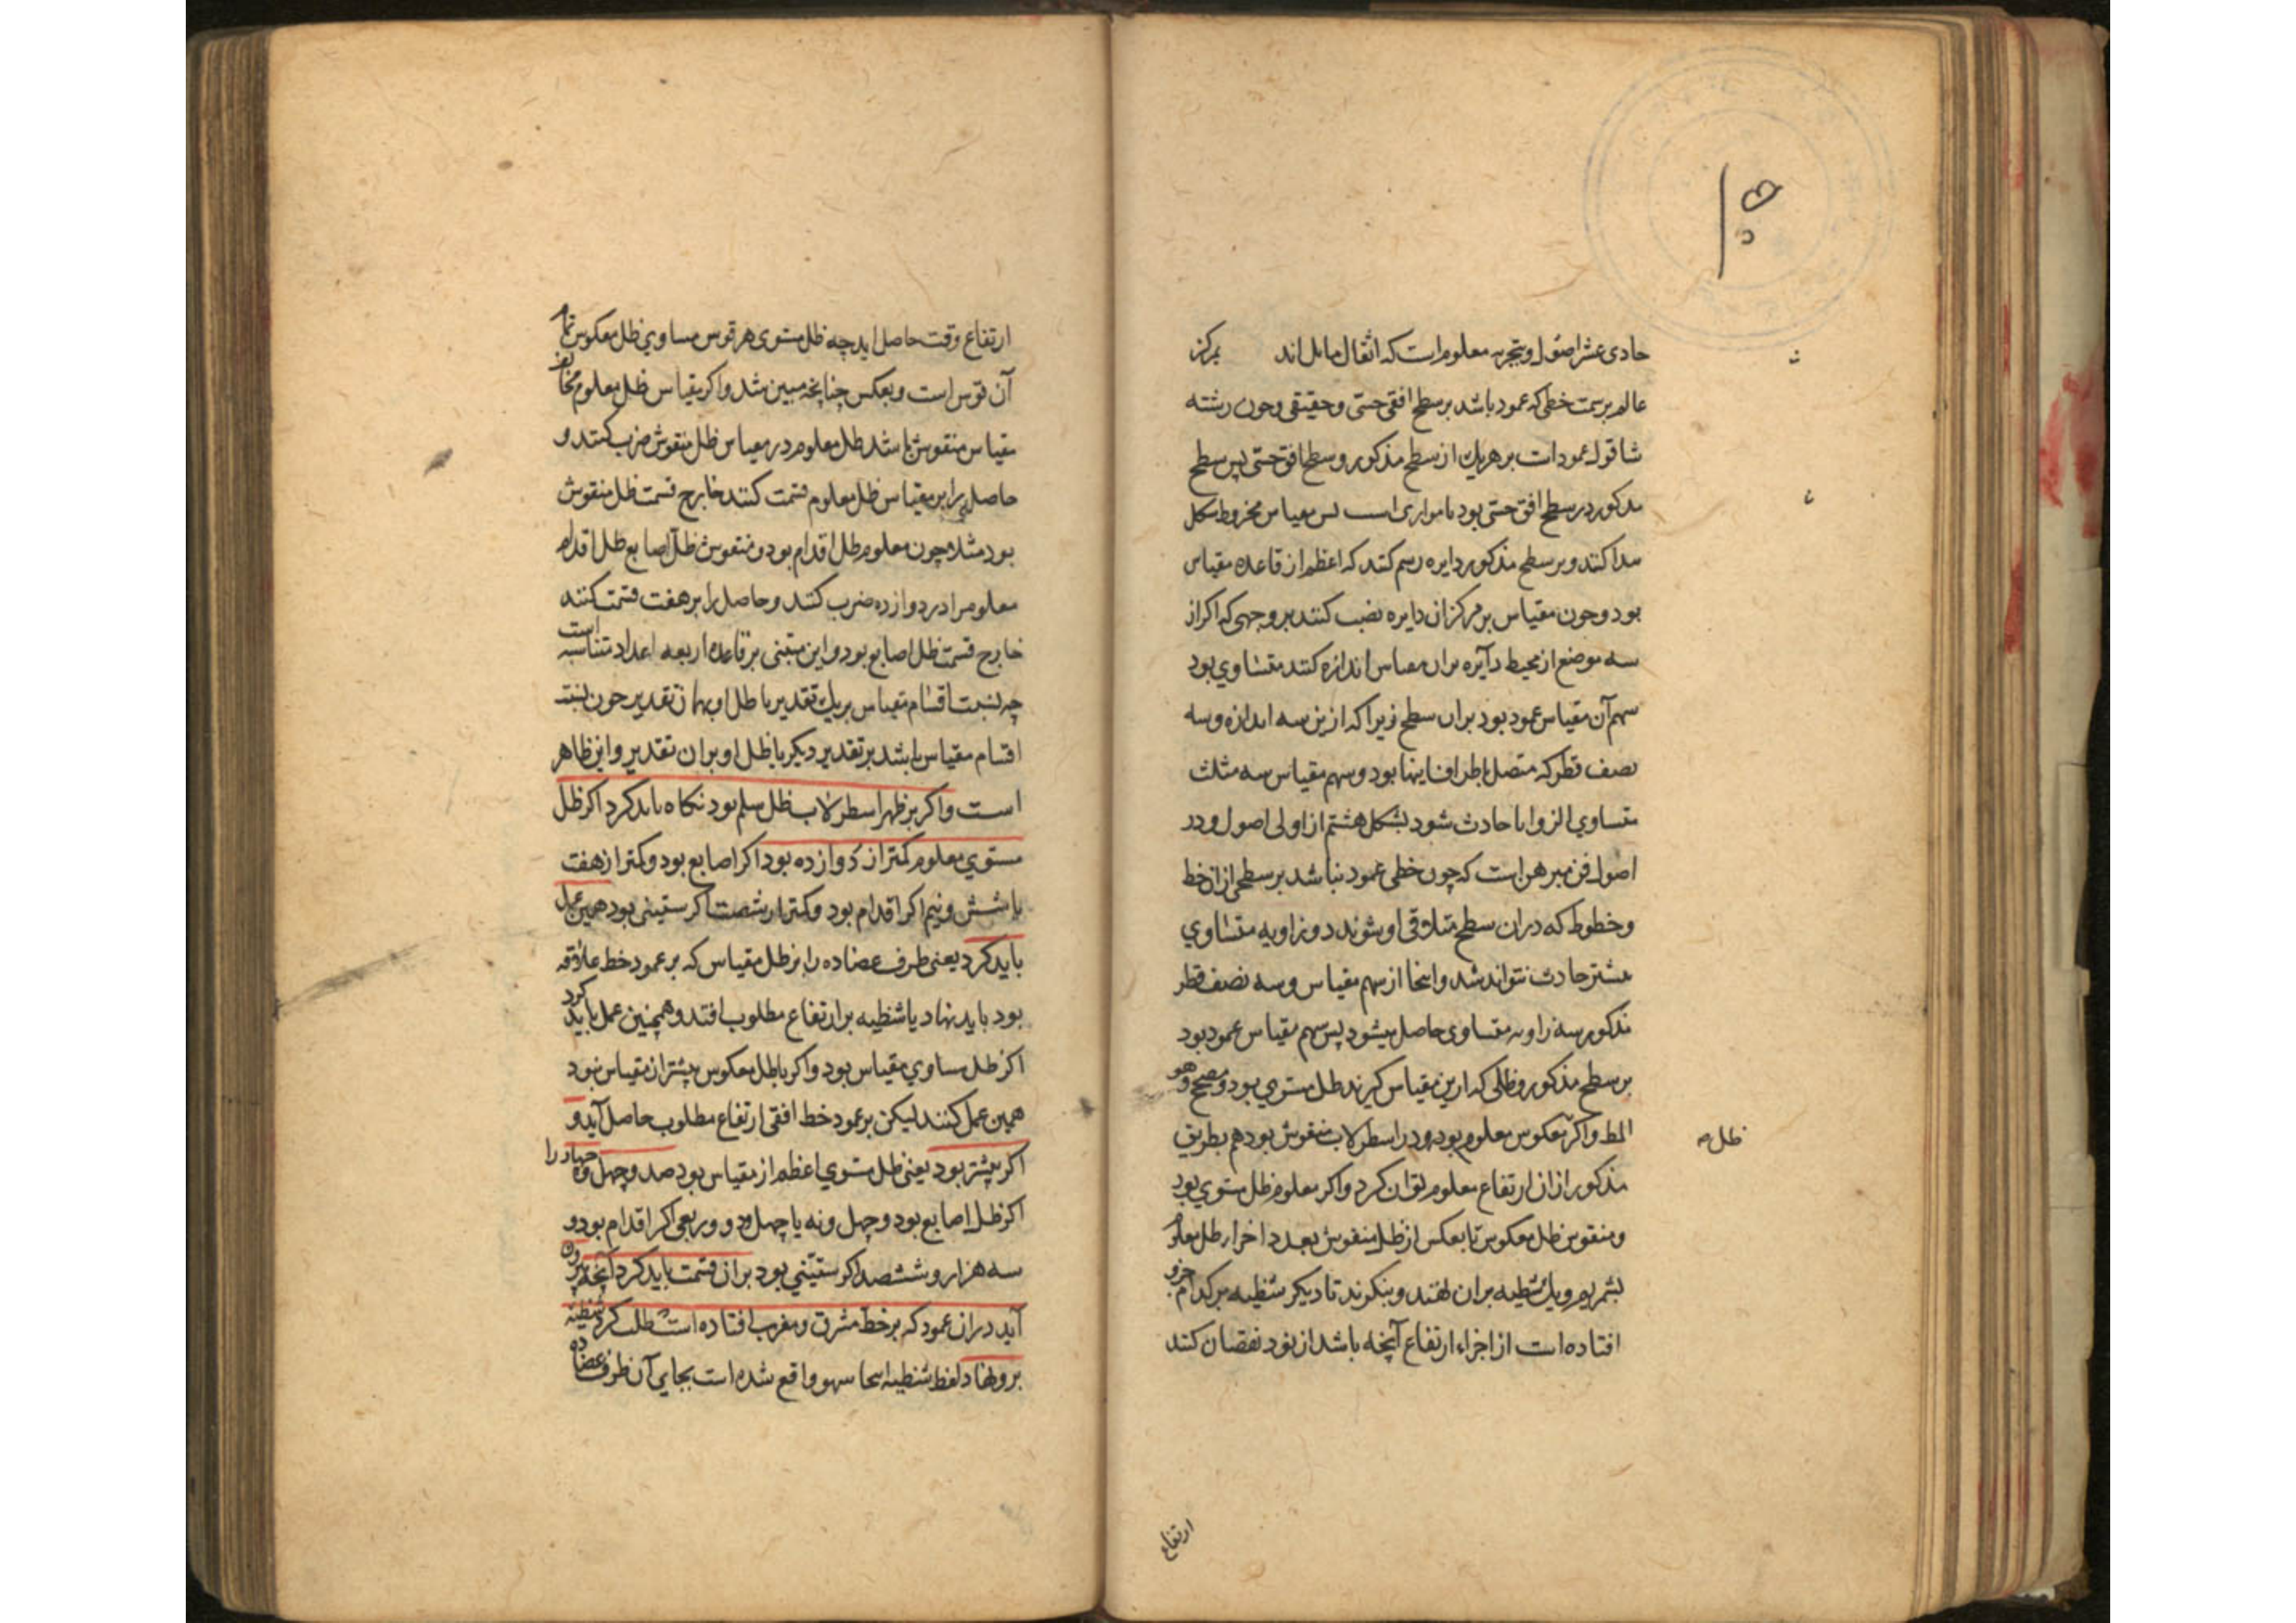 حادی عشر اصول و بتجربه معلوم است که اثقال مایل اند بمرکز
عالم بر سمت خطی که عمود باشد بر سطح افقی حسّی و حقیقی و چون رشته
شاقول عمود است بر هریک از سطح مذکور و سطح افق حسّی پس سطح
مذکور در سطح افق حسّی بود یا موازی است پس مقیاس مخروط شکل
پیدا کنند و بر سطح مذکور دایره رسم کنند که اعظم از قاعده مقیاس
بود و چون مقیاس بر مرکز آن دایره نصب کنند بر وجهی که اگر از
سه موضع از محیط دآیره بران مقیاس اندازه کنند متساوی بود
سهم آن مقیاس عمود بود بران سطح زیرا که ازین سه اندازه و سه
نصف قطر که متصل باطراف اینها بود و سهم مقیاس سه مثلث
متساوی الزوایا حادث شود بشکل هشتم از اولی اصول و در
اصول فن مبرهن است که چون خطی عمود نباشد بر سطحی از ان خط
و خطوط که دران سطح متلاقی او شوند دو زاویه متساوی
بیشتر حادث نتواند شد و اینجا از سهم مقیاس و سه نصف قطر
مذکور سه زاویه متساوی حاصل میشود پس سهم مقیاس عمود بود
بر سطح مذکور و ظلی که ازین مقیاس گیرند ظل مستوی بود و صحیح و هو
المط و اگر معکوس معلوم بود و در اسطرلاب منقوش بود هم بطریق
ظل ص
مذکور ازان ارتفاع معلوم توان کرد و اگر معلوم ظل مستوی بود
و منقوش ظل معکوس تا بعکس از ظل منقوش بعدد اجزاء ظل معلوم
بشمریم و یک شظیه بران نهند و بنگرند تا دیگر شظیه بر کدام جزو
افتاده است از اجزاء ارتفاع آنچه باشد از نود نقصان کنند
ارتفاع
ارتفاع وقت حاصل اید چه ظل مستوی هر قوس مساوی ظل معکوس تمام
آن قوس است و بعکس چنانچه مبین شد و اگر مقیاس ظل معلوم مخالف
مقیاس منقوش باشد ظل معلوم در مقیاس ظل منقوش ضرب کنند و
حاصل را بر مقیاس ظل معلوم قسمت کنند خارج قسمت ظل منقوش
بود مثلا چون معلوم ظل اقدام بود و منقوش ظل اصابع ظل اقدام
معلوم را در دوازده ضرب کنند و حاصل را بر هفت قسمت کنند
خارج قسمت ظل اصابع بود و این مبتنی بر قاعده اربعه اعداد متناسبه است
چه نسبت اقسام مقیاس بر یک تقدیر با ظل او بهمان تقدیر چون نسبت
اقسام مقیاس باشد بر تقدیر دیگر با ظل او بران تقدیر و این ظاهر
است و اگر بر ظهر اسطرلاب ظل سلم بود نگاه باید کرد اگر ظل
مستوی معلوم کمتر از دوازده بود اگر اصابع بود و کمتر از هفت
یا شش و نیم اگر اقدام بود و کمتر از شصت اگر ستینی بود همین عمل
باید کرد یعنی طرف عضاده را بر ظل مقیاس که بر عمود خط علاقه
بود باید نهاد یا شظیه بر ارتفاع مطلوب افتد و همچنین عمل باید کرد
اگر ظل مساوی مقیاس بود و اگر با ظل معکوس بیشتر از مقیاس نبود
همین عمل کنند لیکن بر عمود خط افقی ارتفاع مطلوب حاصل آید و
اگر بیشتر بود یعنی ظل مستوی اعظم از مقیاس بود صد و چهل و چهار را
اگر ظل اصابع بود و چهل و نه یا چهل و دو و ربعی اگر اقدام بود و
سه هزار و ششصد اگر ستینی بود بران قسمت باید کرد آنچه بیرون
آید دران عمود که بر خط مشرق و مغرب افتاده است طلب کرد شظیه
برو نهاد لفظ شظیه اینجا سهو واقع شده است بجای آن طرف عضاده